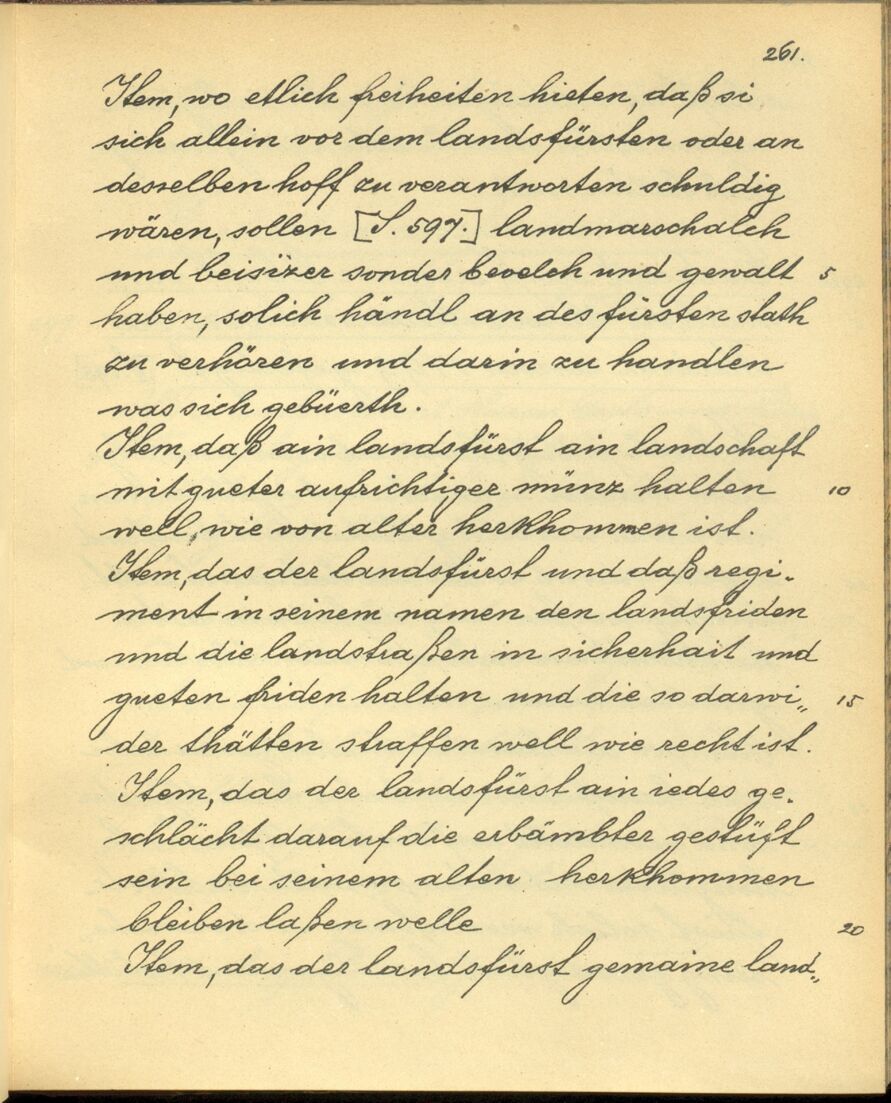 261.
Item, wo etlich freiheiten hieten, daß si
sich allein vor dem landsfürsten oder an
desselben hoff zu verantworten schuldig
wären, sollen [S. 597.] landmarschalch
und beisizer sonder bevelch und gewalt 5
haben, solich händl an des fürsten stath
zu verhören und darin zu handlen
was sich gebüerth.
Item, daß ain landsfürst ain landschaft
mit gueter aufrichtiger münz halten 10
well, wie von alter herkhommen ist.
Item, das der landsfürst und daß regi-
ment in seinem namen den landsfriden
und die landstraßen in sicherhait und
gueten friden halten und die so darwi„ 15
der thätten straffen well wie recht ist.
Item, das der landsfürst ain iedes ge-
schlächt darauf die erbämbter gestüft
sein bei seinem alten herkhommen
bleiben laßen welle 20
Item, das der landsfürst gemaine land„